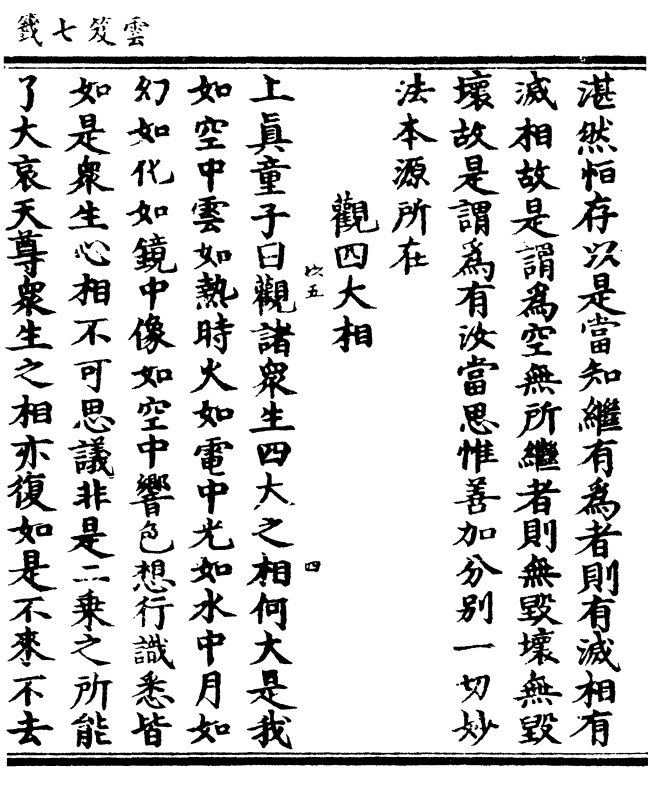 雲笈七籤
湛然怕存以是當知繼有爲者則有滅相有
滅相故是謂爲空無所繼者則無毀壞無毀
壞故是謂爲有汝當思惟善加分別一切妙
法本源所在
觀四大相
次五
四
上眞童子曰觀諸衆生四大之相何大是我
如空中雲如熱時火如電中光如水中月如
幻如化如鏡中像如空中響色想行識悉皆
如是衆生心相不可思議非是二乗之所能
了大哀天尊衆生之相亦復如是不來不去